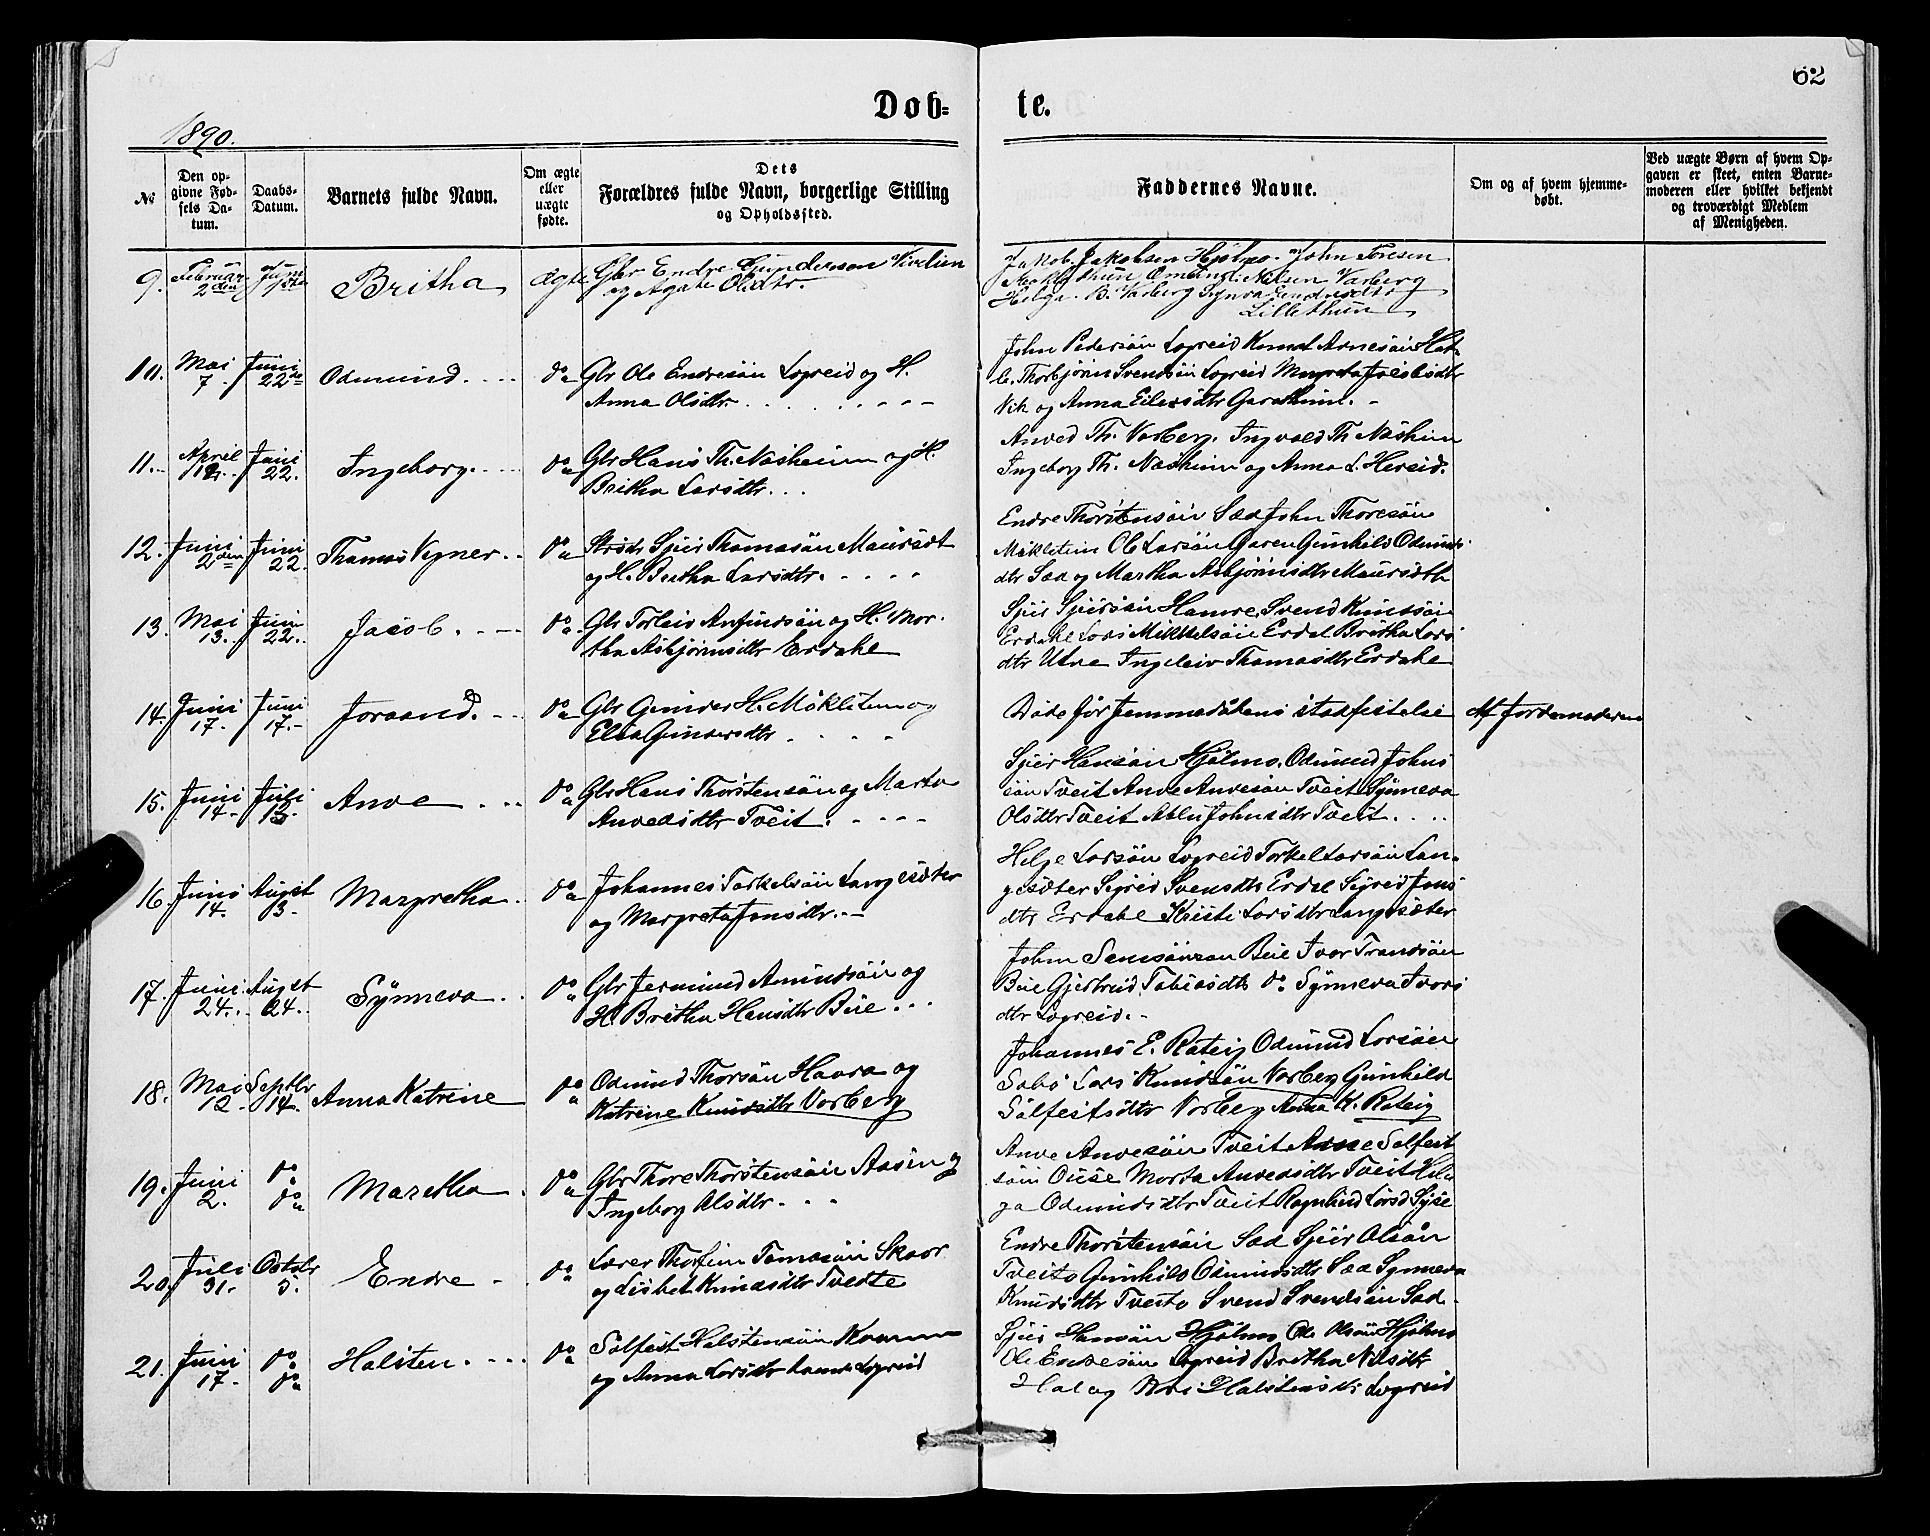 62
Døb-te.
1890.
№
Den op-
givne Fød-
sels Da-
tum.
Daabs-
Datum.
Barnets fulde Navn.
Om ægte
eller
uægte
fødte.
Dets
Forældres fulde Navn, borgerlige Stilling
og Opholdssted.
Faddernes Navne.
Om og af hvem hjemme-
døbt.
Ved uægte Børn af hvem Op-
gaven er skeet, enten Barne-
moderen eller hvilket bekjendt
og troværdigt Medlem
af Menigheden.
9. Februar 2den Juni 1ste Britha ægte Gbr Endre Gundersen Vivelien
og Agate Olsdtr.
Jakob Jakobsen Hjølmo. John Toresen
Omund Nilsen Varberg
Helga B. Varberg Synva Endresdtr
Lillethun
10. Mai 7. Juni 22de Odmund. do Gbr Ole Endresøn Legreid og H.
Anna Olsdtr.
John Pedersøn Legreid Knud Arnesøn Hot-
le, Thorbjørn Svendsøn Legreid Margreta Jacobsdtr
Vik og Anna Eilersdtr Garathun.
11. April 12. Juni 22. Ingeborg. do Gbr Hans Th. Næsheim og H.
Britha Larsdtr.
Anved Th. Varberg. Ingvald Th Næsheim
Ingeborg Th. Næsheim og Anna L. Hereid.
12. Juni 2den Juni 22. Thomas Vegner. do Sjur Thomasøn Maursæt
og H. Britha Larsdtr.
Endre Thorstensøn Sæd John Thoresøn
Mikletun Ole Larsøn Garen Gunhild Odmunds-
dtr Sæd og Martha Asbjørnsdtr Maursæth
13. Mai 13. Juni 22. Jacob. do Gbr Torleiv Anfindsøn og H. Mar-
tha Asbjørnsdtr Erdahl
Sjur Sjursøn Hamre, Svend Knudsøn
Erdahl Lars Mikkelsøn Erdal Britha Lars-
dtr Utne Ingeleiv Thomasdtr Erdahl
14. Juni 17. Juni 17. Joraand. do Gbr Gunder H. Mikletun og
Elsa Gundersdtr
Døde før hjemmedaabens stadfestelse
Af Jordemoderen
15. Juni 14. Juli 13. Anve do Gbr Hans Thorstensøn og Marta
Anvedsdtr Tveit.
Sjur Hansøn Hjølmo. Odmund Johns
søn Tveit Anve Anvesøn Tveit Synneva
Olsdtr Tveit Johnsdtr Tveit.
16. Juni 14. August 3. Margretha. do Johannes Torkelsøn Langesæter
og Margreta Jonsdtr.
Helge Larsøn Legreid Torkel Larsøn Lan-
gesæter Sigrid Svensdtr Erdal Sigrid Jons
dtr Erdahl Kristi Larsdtr Langesæter
17. Juni 24. August 24. Synneva. do Gbr Jermund Amundsøn og
H. Britha Hansdtr Bue.
John Samsønson Bue Ivar Trondsøn
Bue Gjertrud Tobiasdtr do Synneva Ivars
dtr Legreid.
18. Mai 12. Septbr 14. Anna Katrine do Odmund Thorsøn Haara og
Katrine Knudsdtr Varberg
Johannes E. Røteig Odmund Larsøn
Sabø Lars Knudsøn Varberg Gunhild
Salfestsdtr Varberg Anna K. Røteig
19. Juni 2. do do Maretha. do Gbr Thore Thorstensøn Aasen og
Ingeborg Olsdtr.
Anve Anvesøn Tveit Arne Salfest
søn Marta Anvedsdtr Tveit Hel
ga Odmundsdtr Tveit Ragnhild Larsd Syse
20. Juli 31. Octobr 5. Endre do Lærer Thorfinn Tomasøn Skaar
og Lisbet Knudsdtr Tveite
Endre Thorstensøn Sæd Sjur Olsøn
Tveito Gunhild Odmundsdtr Sæd Synneva
Knudsdtr Tveito Svend Svendsøn Sæd
21. Juni 17. do do Halsten. do Salfest Halstensøn
og Anna Larsdtr Legreid
Sjur Hansøn Hjølmo Ole Olsøn Hjølmo
Ole Endresøn Legreid Britha Nilsdtr
og Halstensdtr Legreid